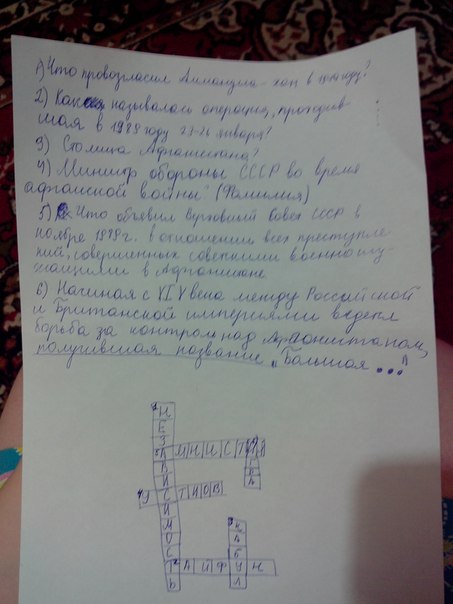 1) Что провозгласил Аманулла-хан в году?
2) Какая называлась операция, проходив-
шая в 1989 году 23-26 января?
3) Столица Афганистана?
4) Министр обороны СССР во время
афганской войны (Фамилия)
5) Что объявил Верховный Совет СССР в
ноябре 1989г. в отношении всех преступле-
ний, совершенных советскими военнослу-
жащими в Афганистане
6) Начиная с XIX века между Российской
и Британской империями ведется
борьба за контроль над Афганистаном,
получившая название "Большая ..."
1 НЕЗАВИСИМОСТЬ
5 АМНИСТИЯ
6 ИГРА
4 УСТИНОВ
3 КАБУЛ
2 ТАЙФУН